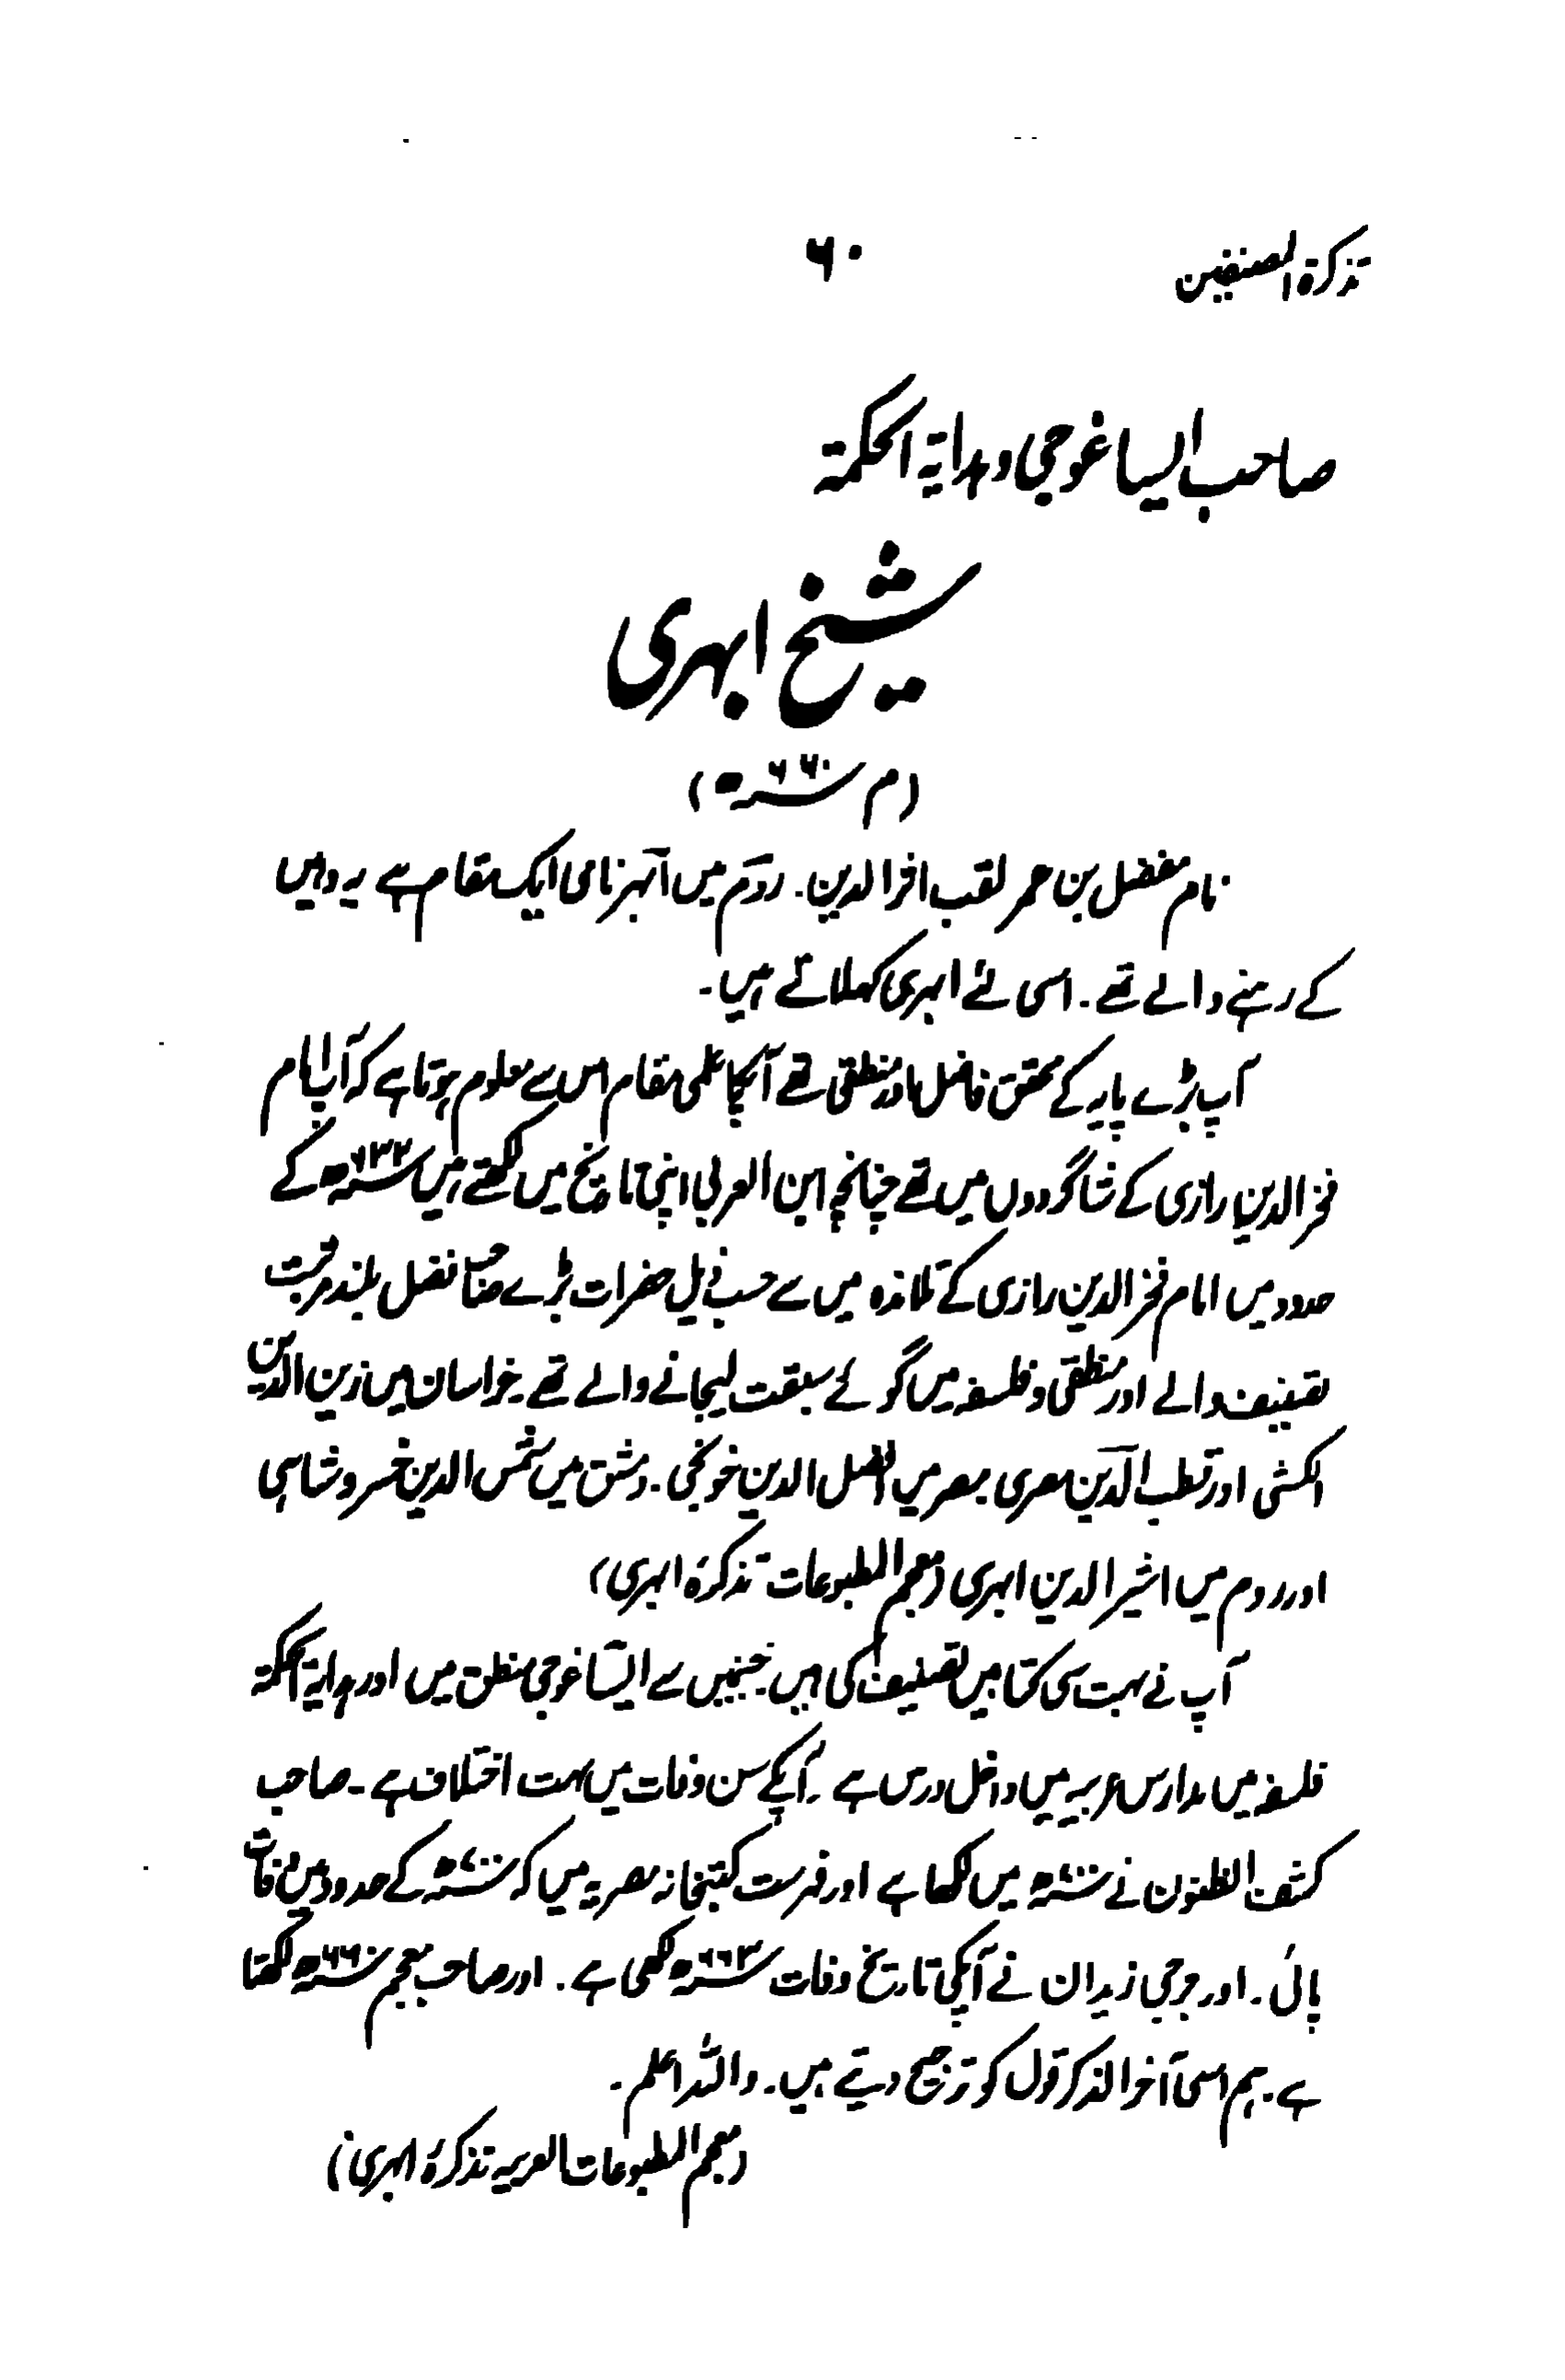 تذکرۃ المصنفین ۶۰
صاحب ایساغوجی و ہدایۃ الحکمۃ
شیخ ابہری
(م ۶۶۰ھ)
نام مفضل بن عمر لقب اثرالدین۔ روم میں ابہر نامی ایک مقام ہے یہ وہیں
کے رہنے والے تھے۔ اسی لئے ابہری کہلاتے ہیں۔
آپ بڑے پایہ کے محقق فاضل اور منطقی تھے آپکا علمی مقام اس سے معلوم ہوتا ہے کہ آپ امام
فخرالدین رازی کے شاگردوں میں تھے چنانچہ ابن العربی اپنی تاریخ میں لکھتے ہیں ۶۳۳ھ کے
حدود میں امام فخرالدین رازی کے تلامذہ میں سے حسب ذیل حضرات بڑے صاحب فضل بلند مرتبت
تصنیف والے اور منطقی و فلسفہ میں گوئے سبقت لیجانے والے تھے۔ خراسان میں زین الدین
الکشی اور قطب الدین مصری مصر میں افضل الدین خونجی۔ دمشق میں شمس الدین خسرو شاہی
اور روم میں اثیر الدین ابہری (معجم المطبوعات تذکرۂ ابہری)
آپ نے بہت سی کتابیں تصنیف کی ہیں جنمیں سے ایساغوجی منطق میں اور ہدایۃ الحکمۃ
فلسفہ میں مدارس عربیہ میں داخل درس ہے۔ آپکے سن وفات میں بہت اختلاف ہے۔ صاحب
کشف الظنون نے میں لکھا ہے اور فہرست کتبخانہ مصریہ میں کہ کے حدود میں وفات
پائی۔ اور جرجی زیدان نے آپکی تاریخ وفات ۶۶۳ھ لکھی ہے۔ اور صاحب معجم ۶۶۰ھ لکھتا
ہے۔ ہم اسی آخر الذکر قول کو ترجیح دیتے ہیں۔ واللہ اعلم۔
(معجم المطبوعات العربیہ تذکرۂ ابہری)